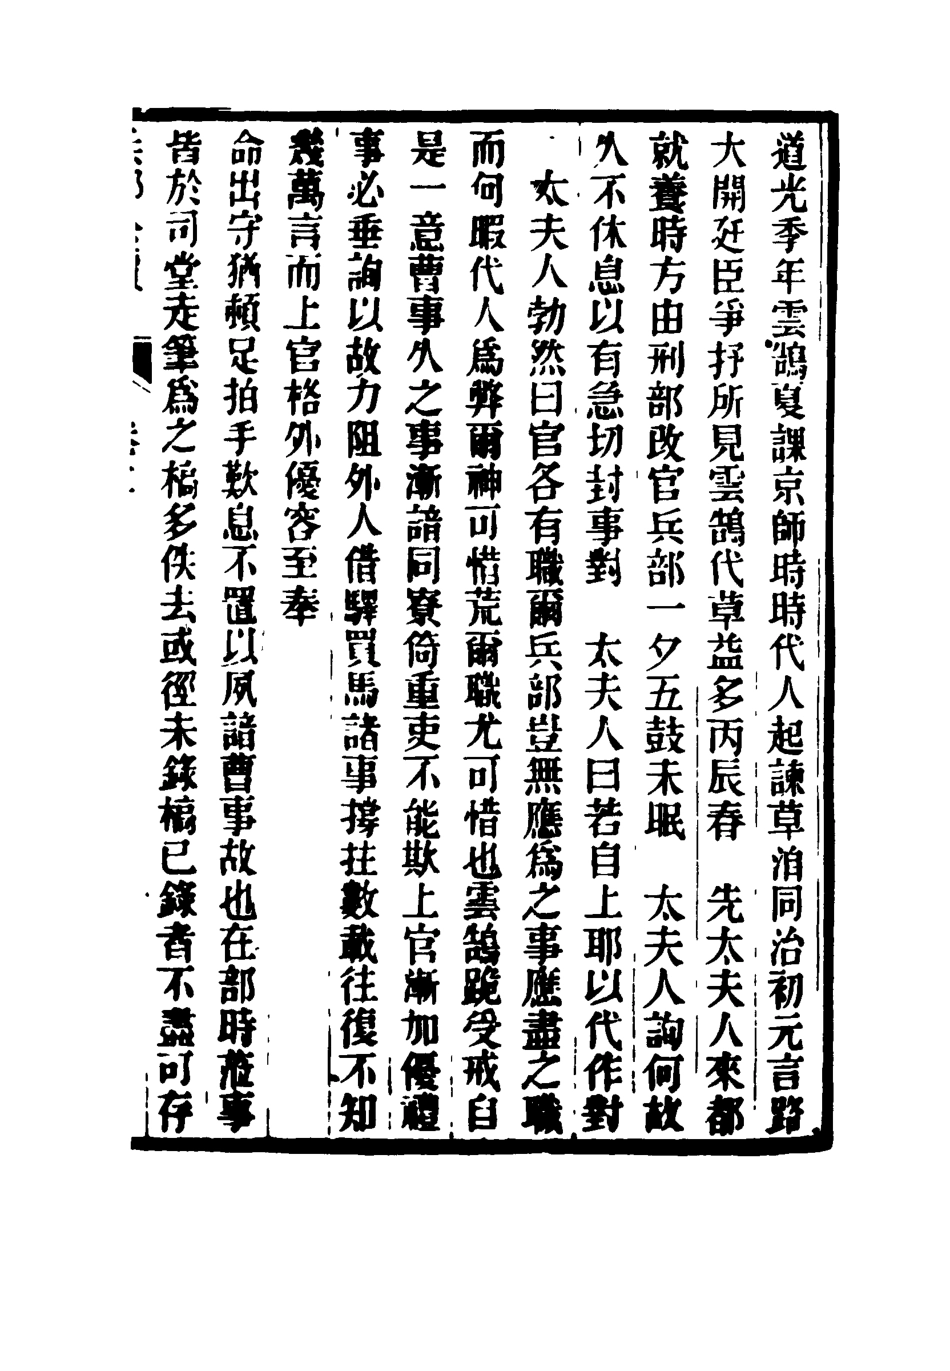 道光季年雲鵠夏課京師時時代人起諫草洎同治初元言路
大開廷臣爭抒所見雲鵠代草益多丙辰春　先太夫人來都
就養時方由刑部改官兵部一夕五鼓未眠　太夫人詢何故
久不休息以有急切封事對　太夫人曰若自上耶以代作對
太夫人勃然曰官各有職爾兵部豈無應為之事應盡之職
而何暇代人為弊爾神可惜荒爾職尤可惜也雲鵠跪受戒自
是一意曹事久之事漸諳同寮倚重吏不能欺上官漸加優禮
事必垂詢以故力阻外人借驛買馬諸事撐拄數載往復不知
幾萬言而上官格外優容至奉
命出守猶頓足拍手歎息不置以夙諳曹事故也在部時蒞事
皆於司堂走筆爲之槁多佚去或徑未錄槁已錄者不盡可存